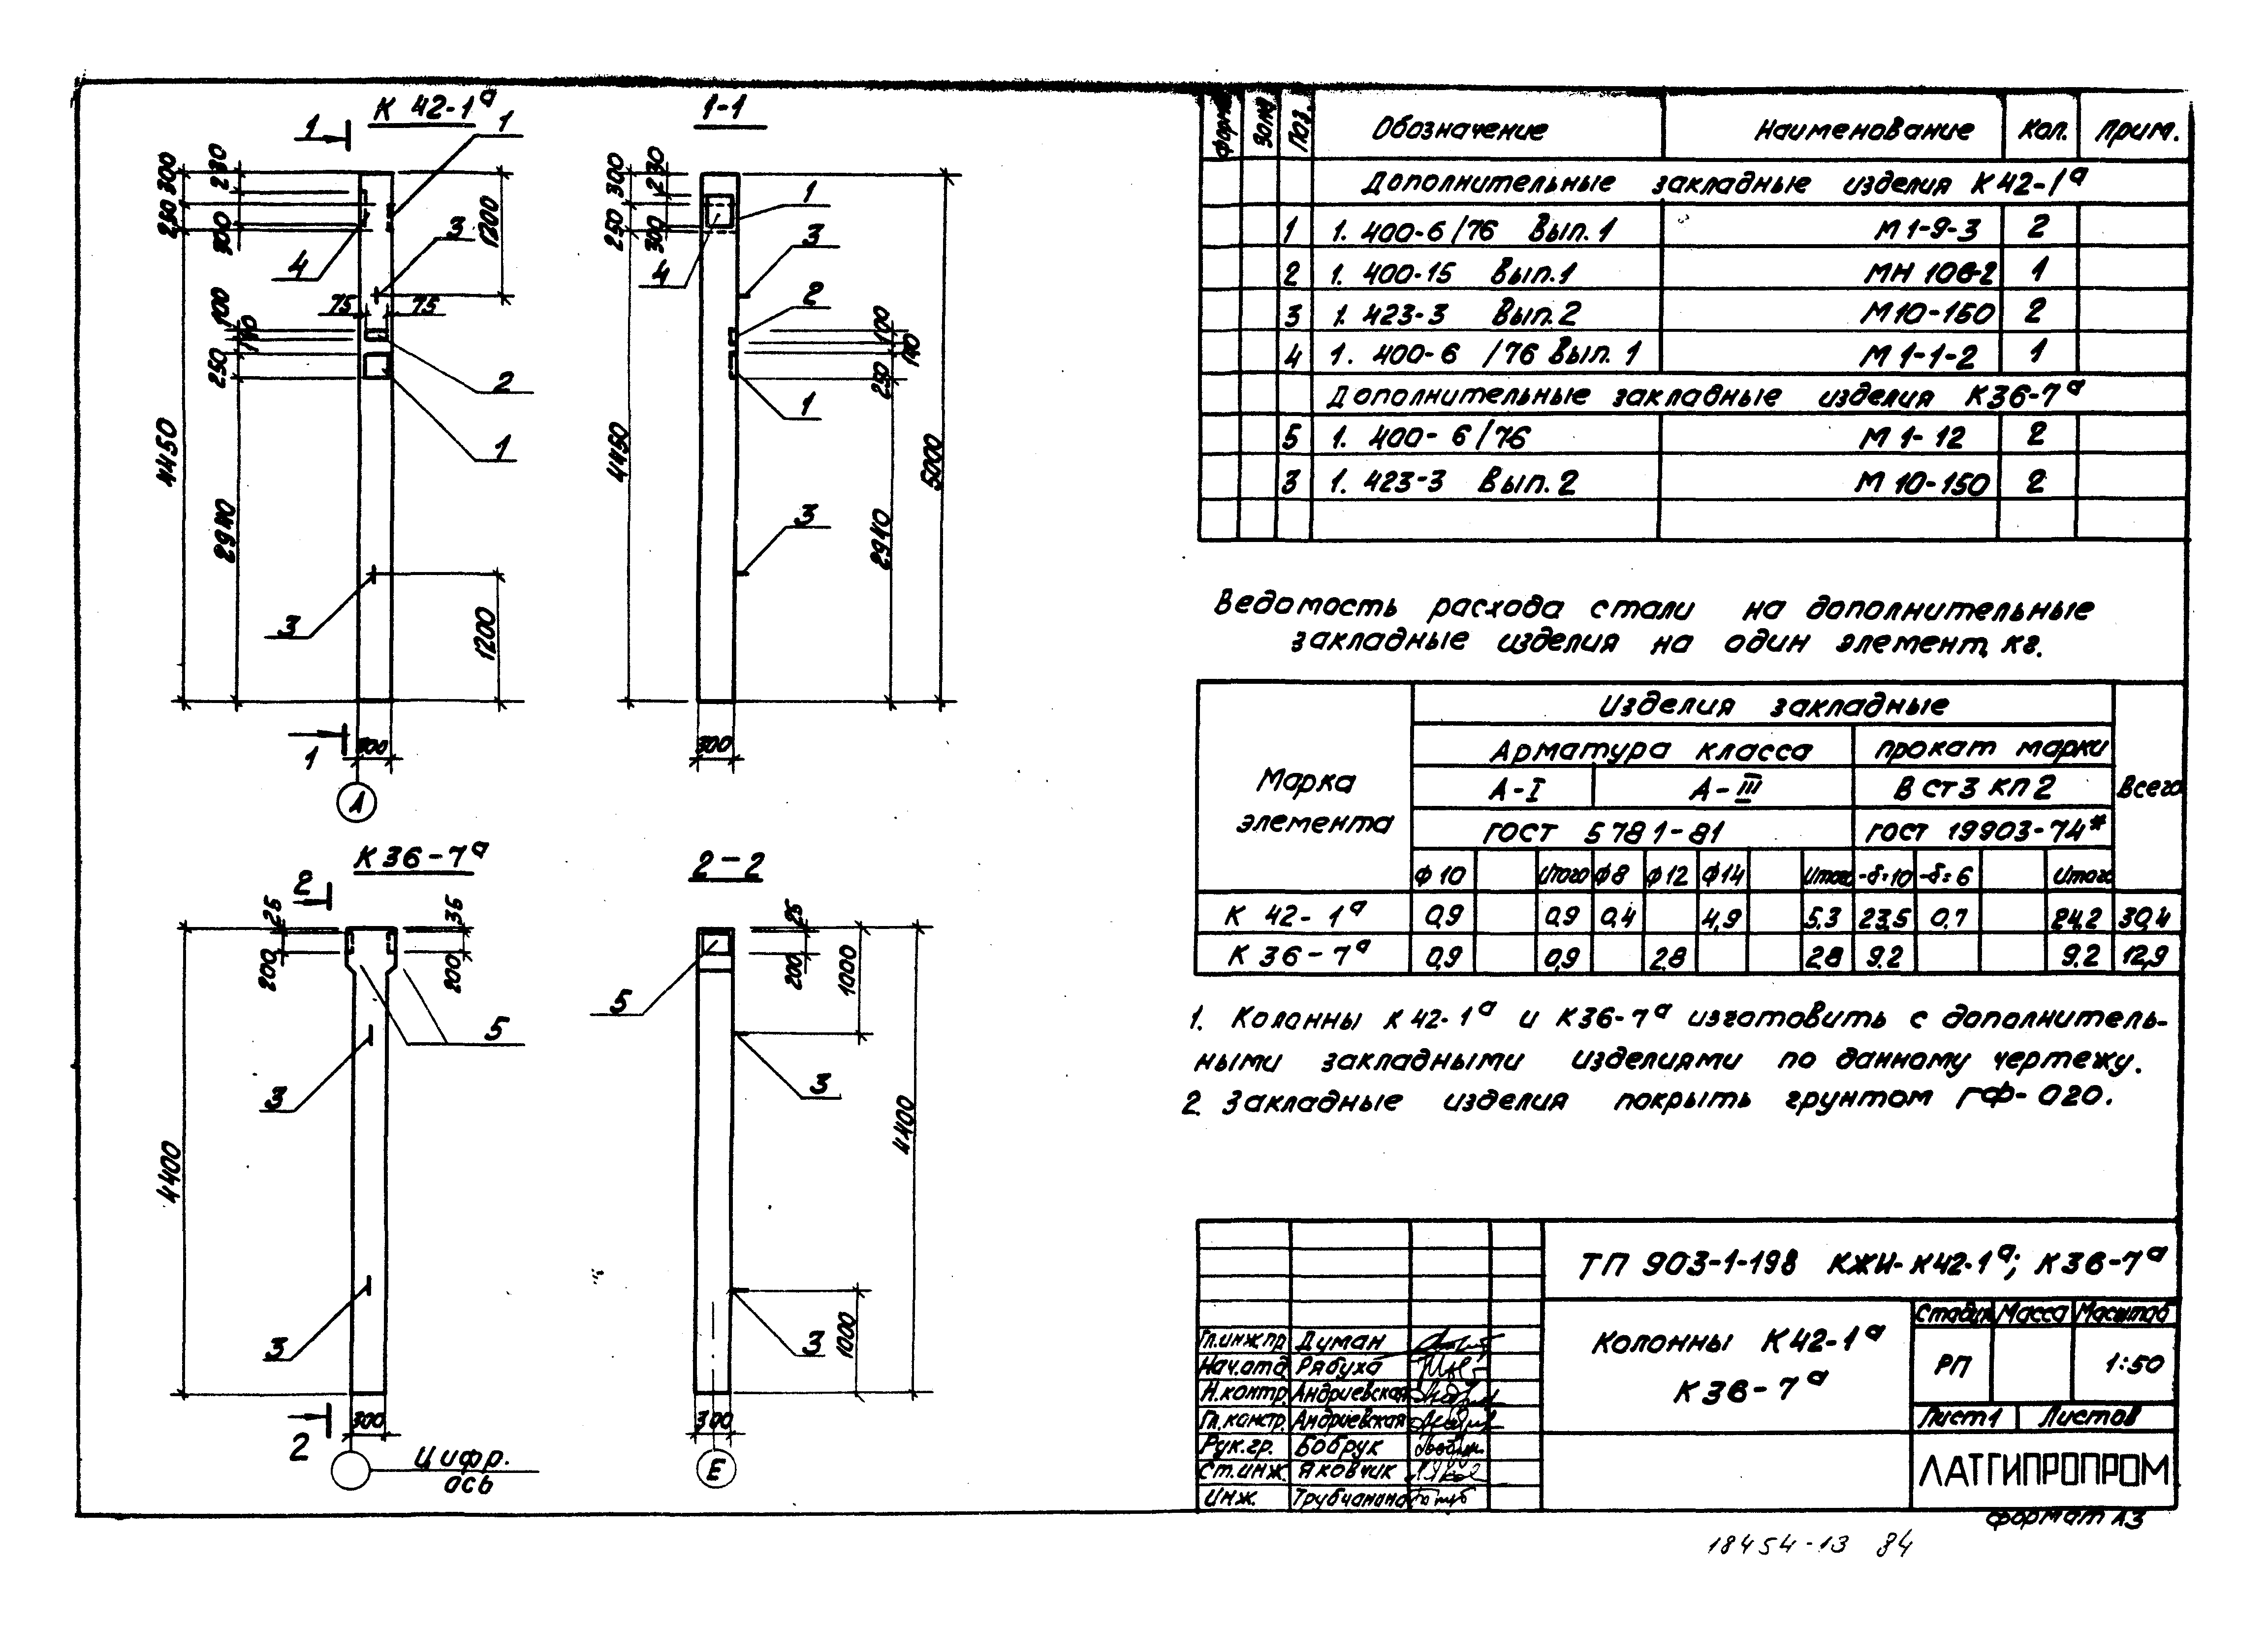 К 42-1ª
1-1
1
1
300
230
250
300
4
3
1200
100
140
75
75
250
2
1
4450
2940
3
1200
1
300
А
300
230
250
300
1
3
4
2
100
140
250
1
4450
5000
3
2940
300
К36-7ª
2-2
2
25
200
35
200
5
3
4400
3
2
300
Цифр.
ось
25
200
1000
5
3
4400
3
1000
300
Е
Форм. Зона Поз. Обозначение Наименование Кол. Прим.
Дополнительные закладные изделия К42-1ª
1 1. 400-6/76 Вып.1 М1-9-3 2
2 1. 400-15 Вып.1 МН 106-2 1
3 1. 423-3 Вып.2 М10-150 2
4 1. 400-6 /76 Вып. 1 М1-1-2 1
Дополнительные закладные изделия К36-7ª
5 1. 400-6/76 М1-12 2
3 1. 423-3 Вып.2 М 10-150 2
Ведомость расхода стали на дополнительные
закладные изделия на один элемент, кг.
Марка элемента
Изделия закладные
Всего
Арматура класса прокат марки
А-I А-III В ст3 кп2
ГОСТ 5781-81 ГОСТ 19903-74*
ф10 Итого ф8 ф12 ф14 Итого -δ=10 -δ=6 Итого
К 42-1ª 0,9 0,9 0,4 4,9 5,3 23,5 0,7 24,2 30,4
К 36-7ª 0,9 0,9 2,8 2,8 9,2 9,2 12,9
1. Колонны К42-1ª и К36-7ª изготовить с дополнитель-
ными закладными изделиями по данному чертежу.
2. Закладные изделия покрыть грунтом ГФ-020.
ТП 903-1-198 КЖИ-К42-1ª; К36-7ª
Колонны К42-1ª
К36-7ª
Стадия Масса Масштаб
РП 1:50
Лист1 Листов
ЛАТГИПРОПРОМ
Гл.инж.пр Думан
Нач.отд Рябуха
Н.контр. Андриевская
Гл.констр. Андриевская
Рук.гр. Бобрук
Ст.инж. Яковчик
Инж. Трубчанина
формат А3
18454-13 84